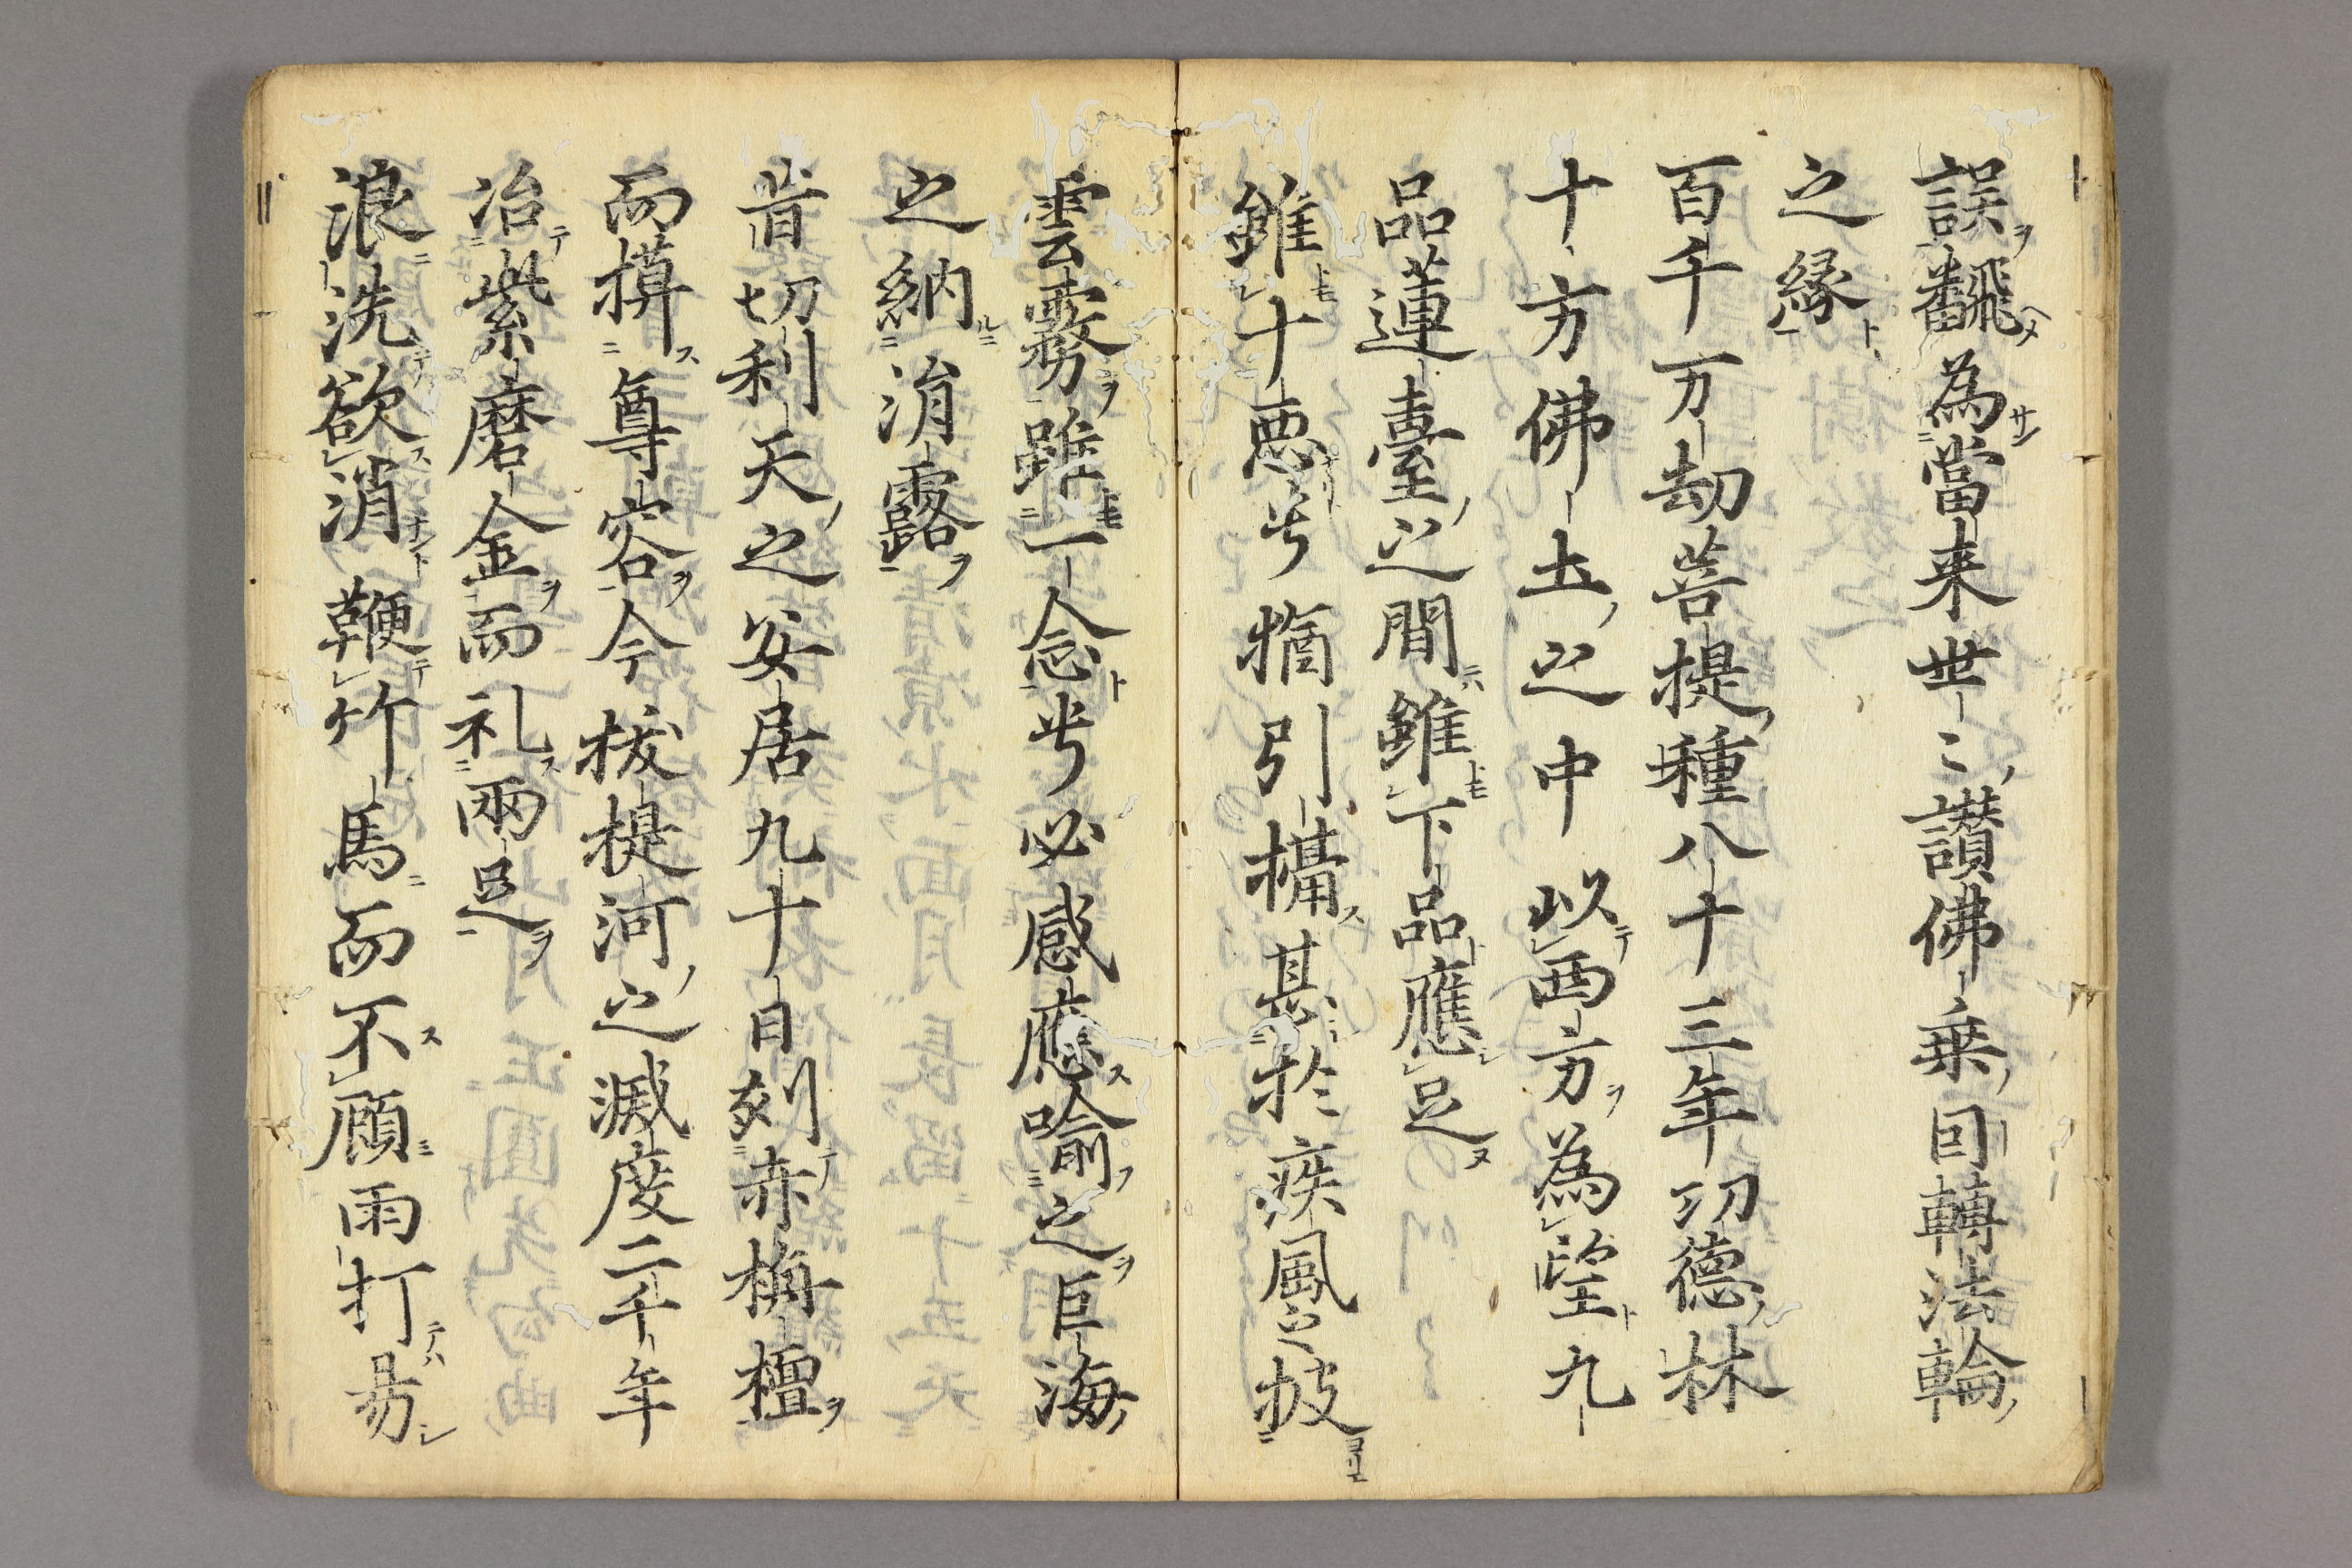 誤飜為當来世〻讃佛乗因轉法輪
之縁
百千万劫菩提種八十三年功德林
十方佛土之中以西方為望九
品蓮臺之間雖下品應足
雖十悪兮猶引攝甚於疾風之披
雲霧雖一念兮必感應喩之巨海
之納涓露
昔忉利天之安居九十日刻赤栴檀
而摸尊容今拔提河之滅度二千年
冶紫磨金而礼兩足
浪洗欲消鞭竹馬而不顧雨打易